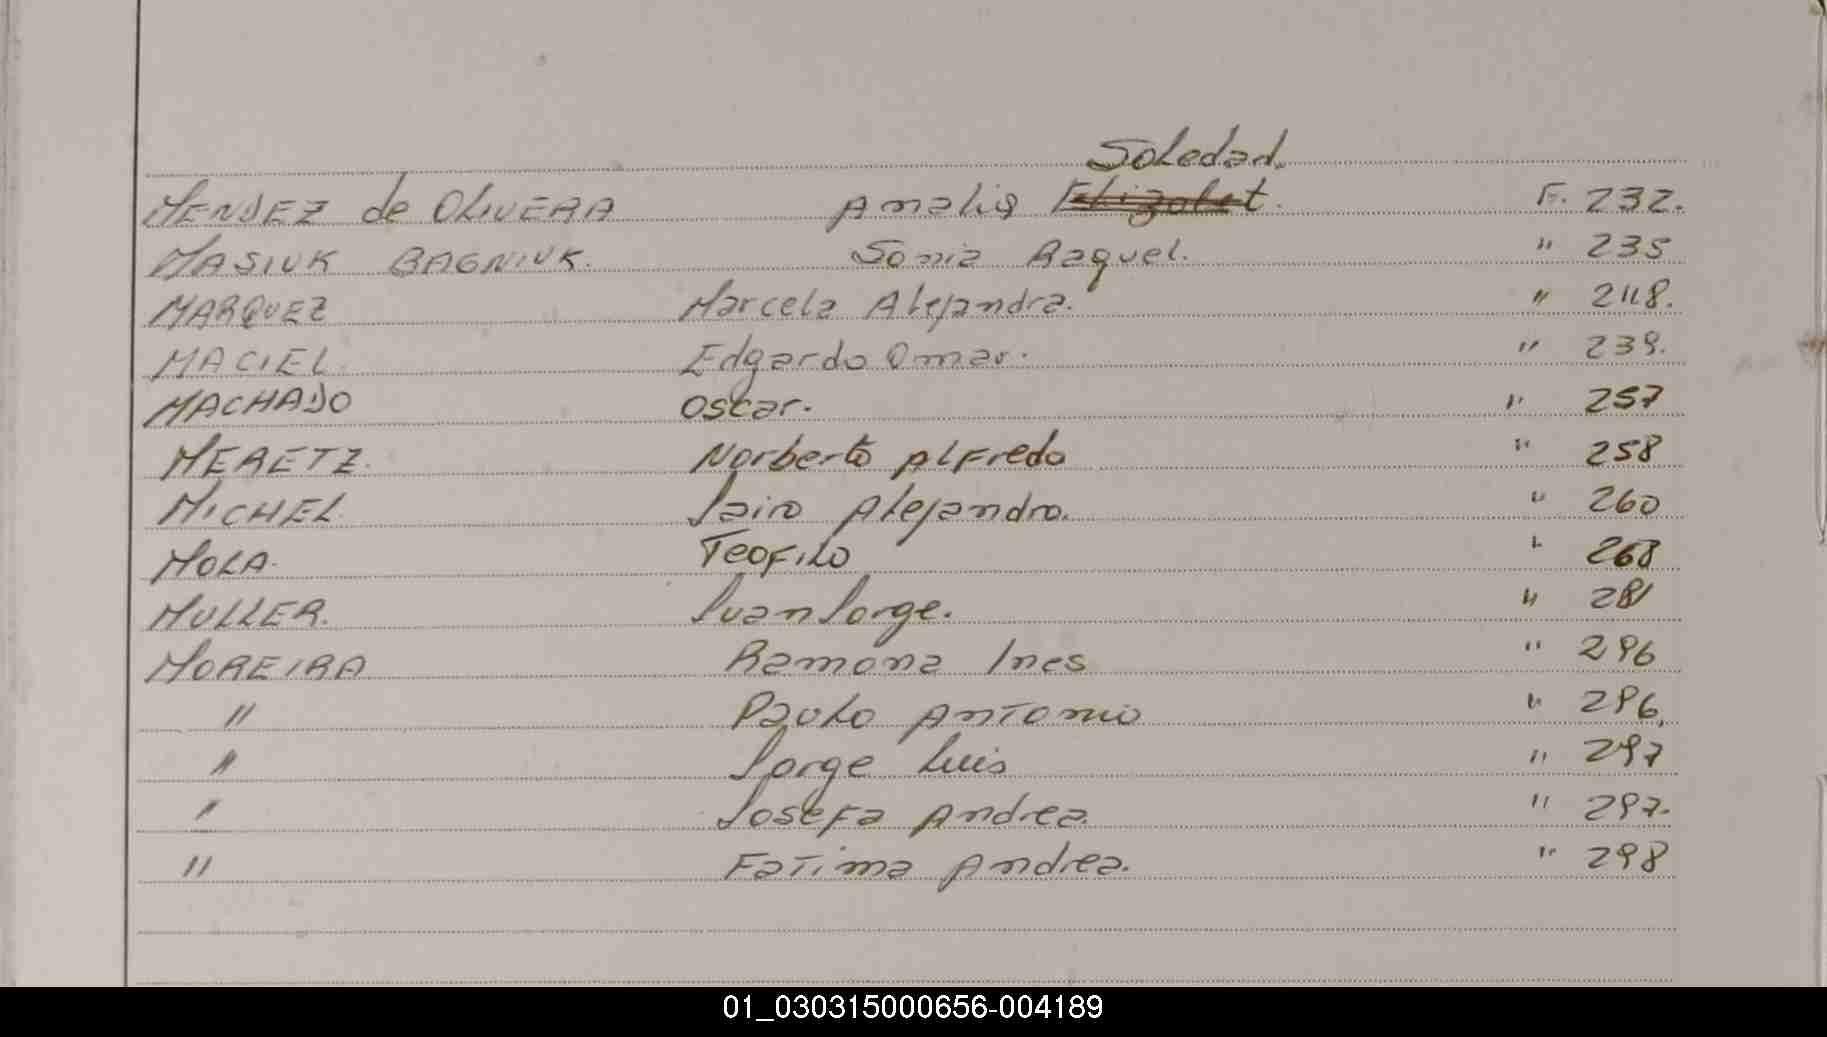 Soledad.
MENDEZ de OLIVERA Amalia Elizabet. F. 232.
MASIUK BAGNIUK. Sonia Raquel. " 235
MARQUEZ Marcela Alejandra. " 248.
MACIEL. Edgardo Omar. " 239.
MACHADO Oscar. " 257
MERETZ. Norberto Alfredo " 258
MICHEL Jairo Alejandro. " 260
MOLA. Teofilo " 268
MULLER. Juan Jorge. " 281
MOREIRA Ramona Ines " 296
" Paolo Antonio " 296,
" Jorge Luis " 297
" Josefa Andrea. " 297.
" Fatima Andrea. " 298
01_030315000656-004189